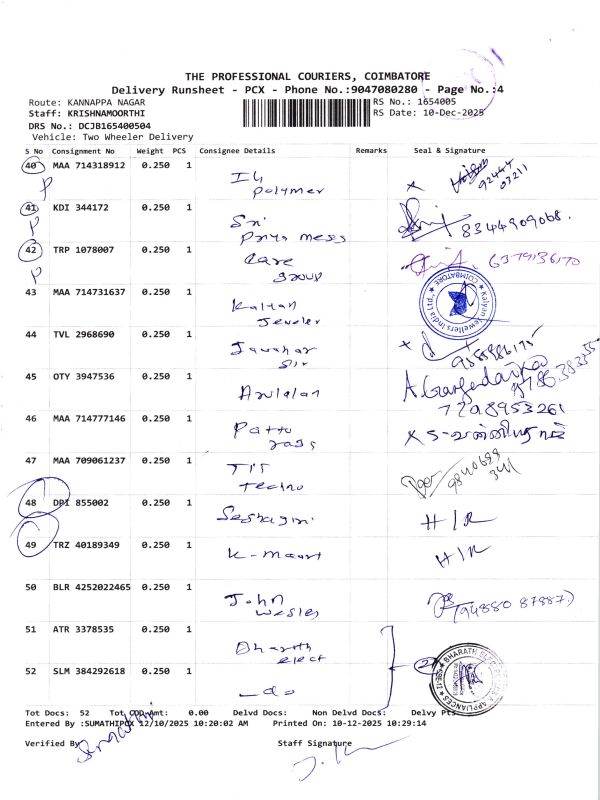 THE PROFESSIONAL COURIERS, COIMBATORE
Delivery Runsheet - PCX - Phone No.:9047080280 - Page No.:4
Route: KANNAPPA NAGAR RS No.: 1654005
Staff: KRISHNAMOORTHI RS Date: 10-Dec-2025
DRS No.: DCJB165400504
Vehicle: Two Wheeler Delivery
S No Consignment No Weight PCS Consignee Details Remarks Seal & Signature
40 MAA 714318912 0.250 1
P polymer 92444 03211
41 KDI 344172 0.250 1
P Sri Priya mess 8344909068.
42 TRP 1078007 0.250 1
P Care group 6379136170
43 MAA 714731637 0.250 1
Kalyan Jeweler
Kalyan Jewellers India Ltd. COIMBATORE
44 TVL 2968690 0.250 1
Jawahar Sir
45 OTY 3947536 0.250 1
7208953261
46 MAA 714777146 0.250 1
Pattu
47 MAA 709061237 0.250 1
Techno
48 DPI 855002 0.250 1
Seshagiri H/R
49 TRZ 40189349 0.250 1
K-maart H/R
50 BLR 4252022465 0.250 1
John Wesley (94880 87887)
51 ATR 3378535 0.250 1
Bharath elect
52 SLM 384292618 0.250 1
-do 2
BHARATH ELECTRONICS & APPLIANCES
Tot Docs: 52 Tot COD Amt: 0.00 Delvd Docs: Non Delvd Docs: Delvy Pts
Entered By :SUMATHIPCX 12/10/2025 10:20:02 AM Printed On: 10-12-2025 10:29:14
Verified By Staff Signature